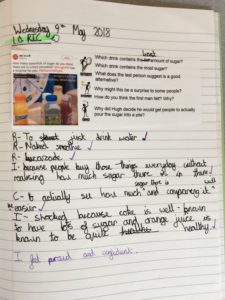 Wednesday 9th May 2018
LO RIC
Which drink contains the least amount of sugar?
Which drink contains the most sugar?
What does the last person suggest is a good
alternative?
Why might this be a surprise to some people?
How do you think the first man felt? Why?
Why did Hugh decide he would get people to actually
pour the sugar into a pile?
R- To just drink water
R- Naked smoothie
R- Lucozade
I- because people buy those things everyday without
realising how much sugar there is in there
sugar there is
C- to actually see how much and comparing it
easier
I- Shocked because coke is well-known
to have lots of sugar and orange juice is
known to be quite healthy
I feel proud and confident.